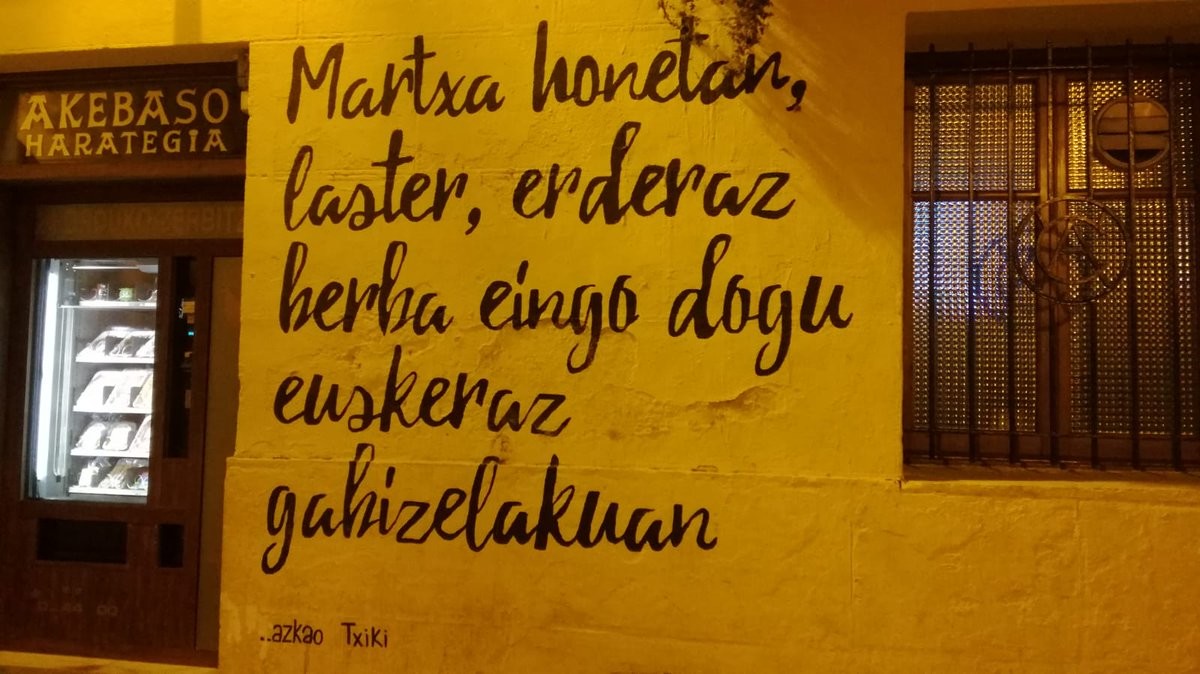 AKEBASO
HARATEGIA
Martxa honetan,
laster, erderaz
berba eingo dogu
euskeraz
gabizelakuan
..azkao Txiki